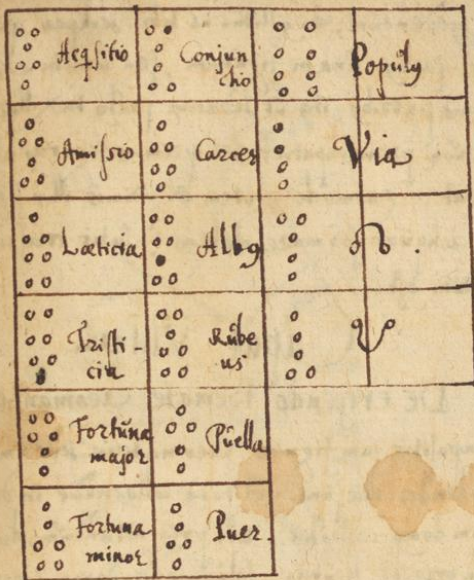 Acqsitio
Conjun
ctio
Populꝰ
Amissio
Carcer
Via
Læticia
Albꝰ
☊.
Tristi-
cia
Rube
us
☋
Fortuna
major
Puella
Fortuna
minor
Puer.